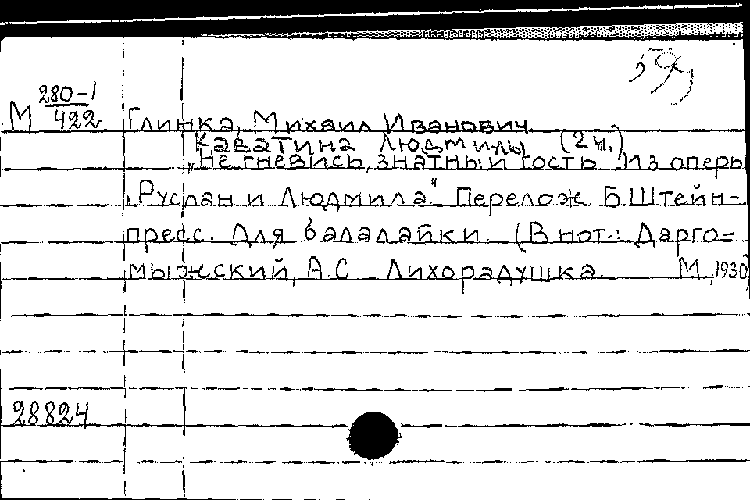 280-1
М 422 Глинка, Михаил Иванович.
Каватина Людмилы (2 ч.)
„Не гневись, знатный гость. Из оперы
„Руслан и Людмила" Перелож Б.Штейн-
пресс. Для балалайки. (В нот.: Дарго=
мыжский, А.С. Лихорадушка. М., 1930)
28824